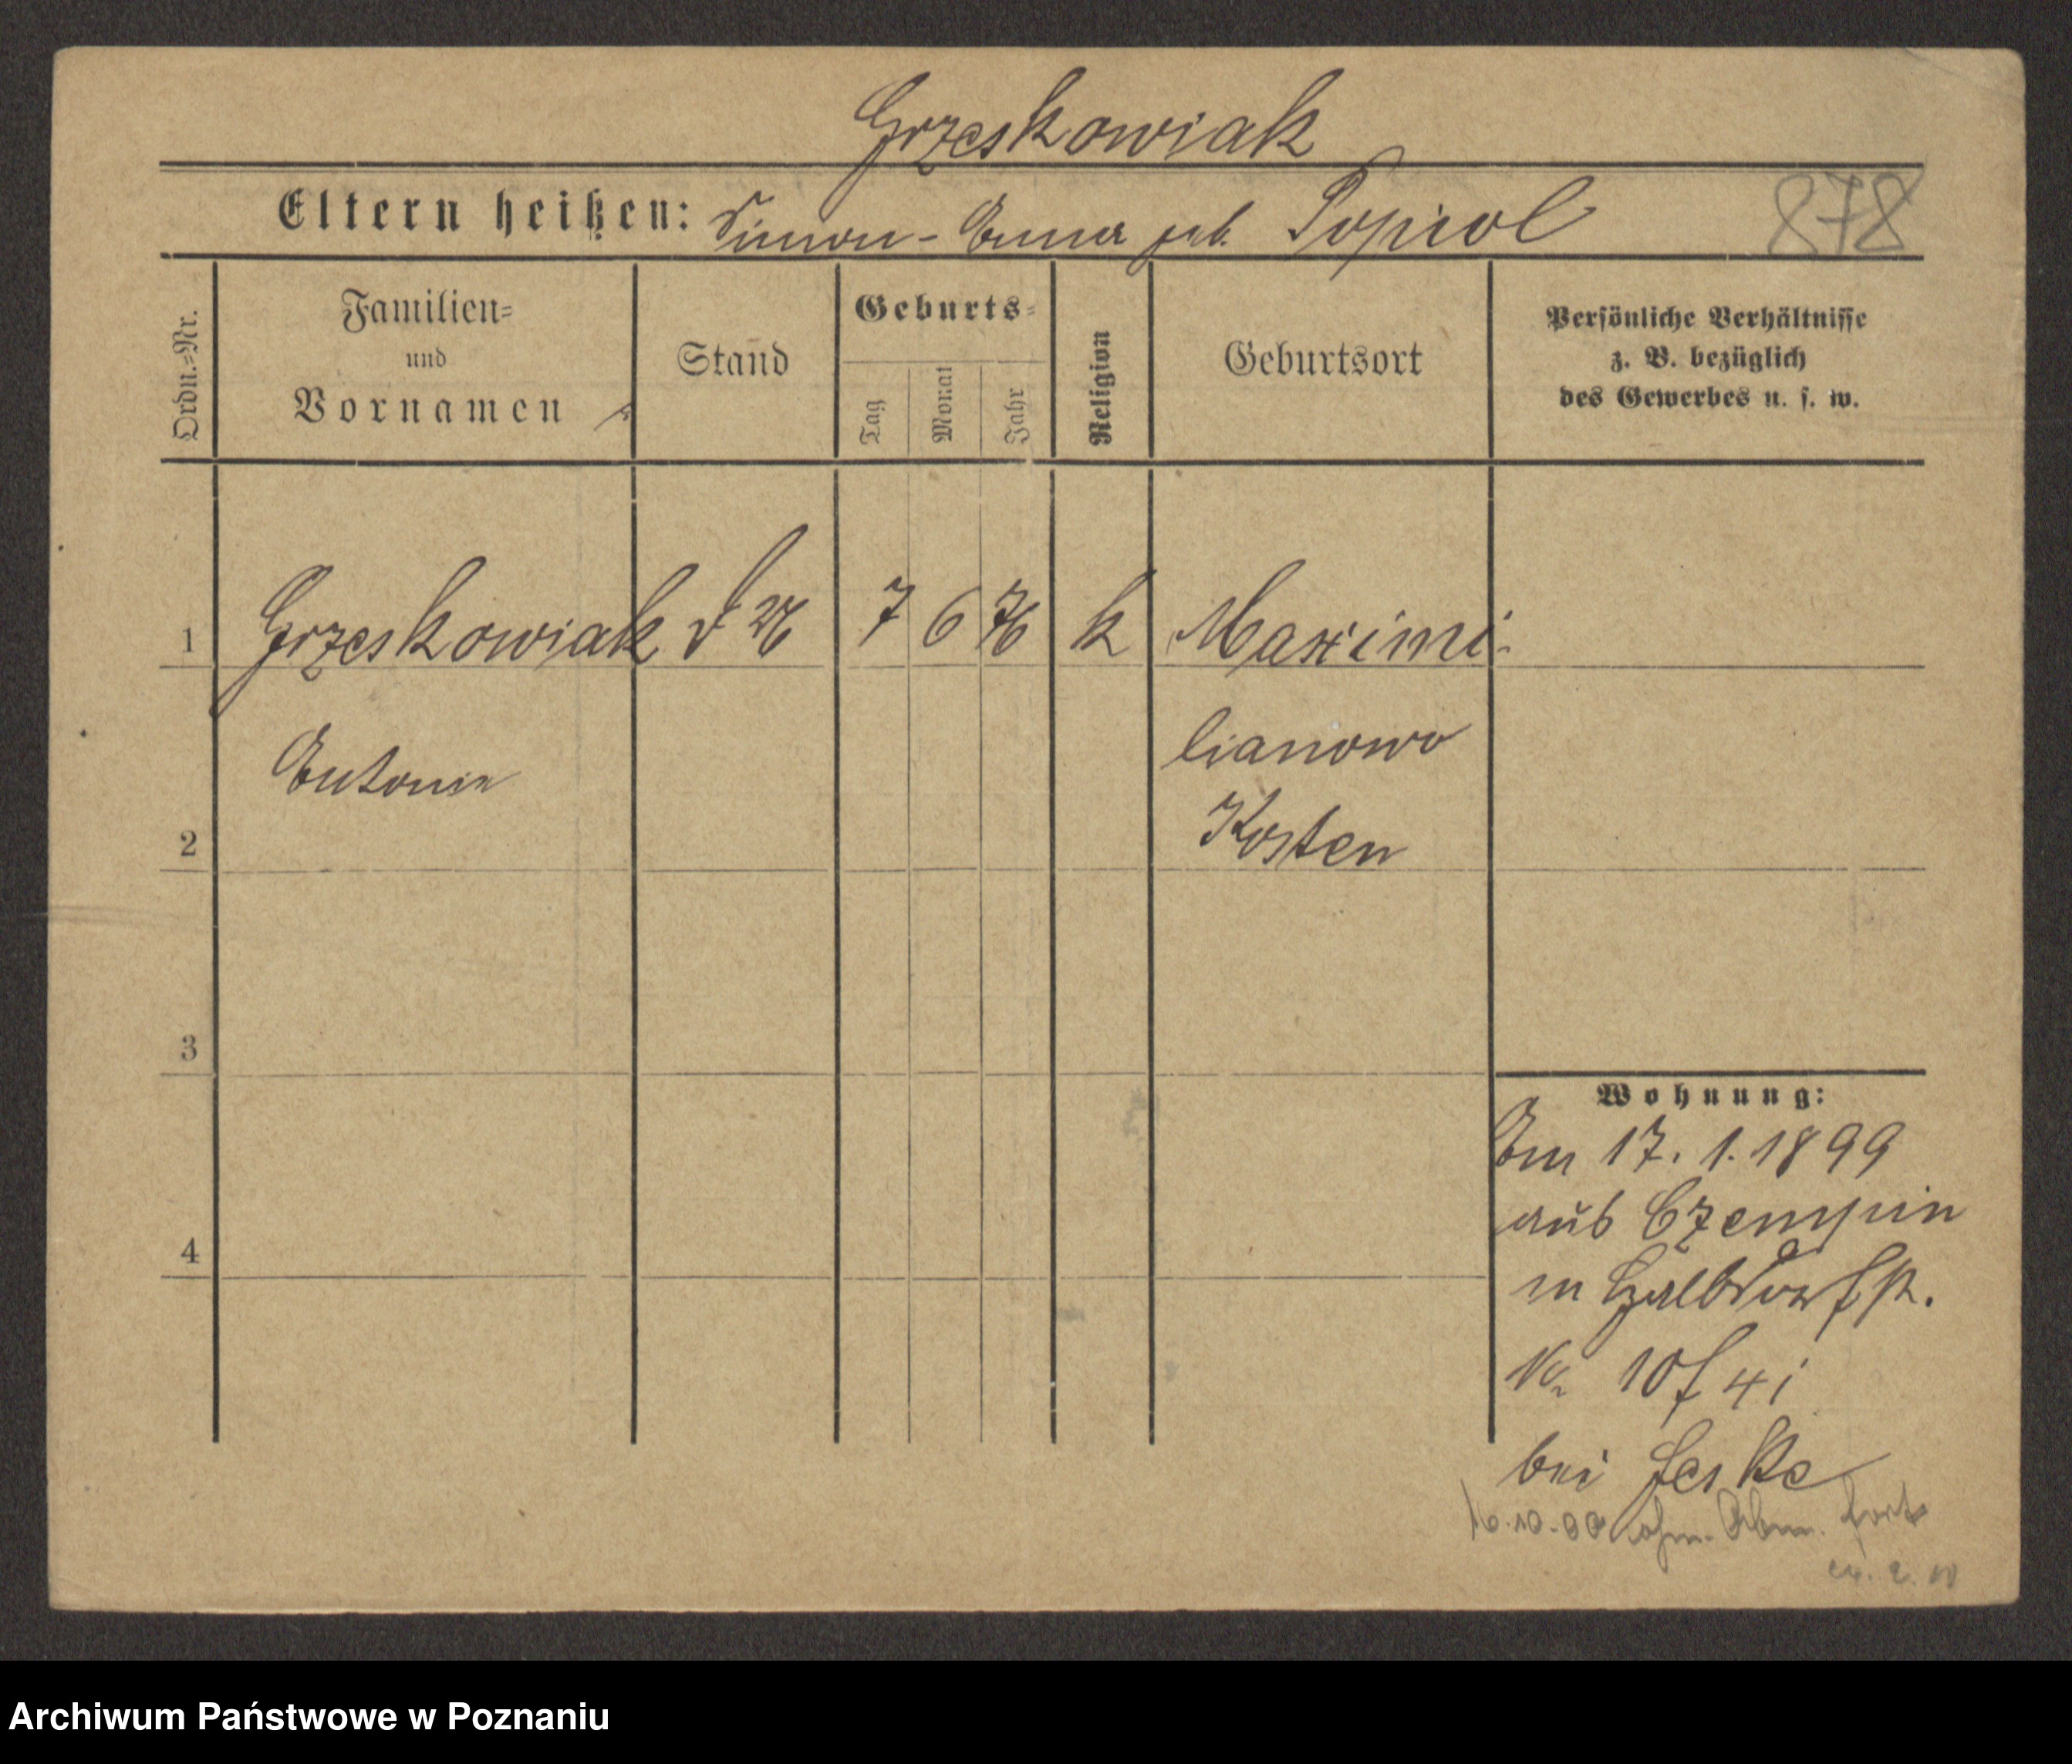 Grzeskowiak
Eltern heißen: Simon - Anna geb. Popiol 878
Ordn.=Nr.
Familien=
und
Vornamen
Stand
Geburts=
Tag
Monat
Jahr
Religion
Geburtsort
Persönliche Verhältnisse
z. B. bezüglich
des Gewerbes u. s. w.
1 Grzeskowiak 7 6 76 k Maximi-
Antonie lianowo
2 Kosten
3
4
Wohnung:
Am 17. 1. 1899
aus Czempin
in Halbdorfstr.
No 10 f 4 i
bei Jeske
16.10.00 fort
Archiwum Państwowe w Poznaniu